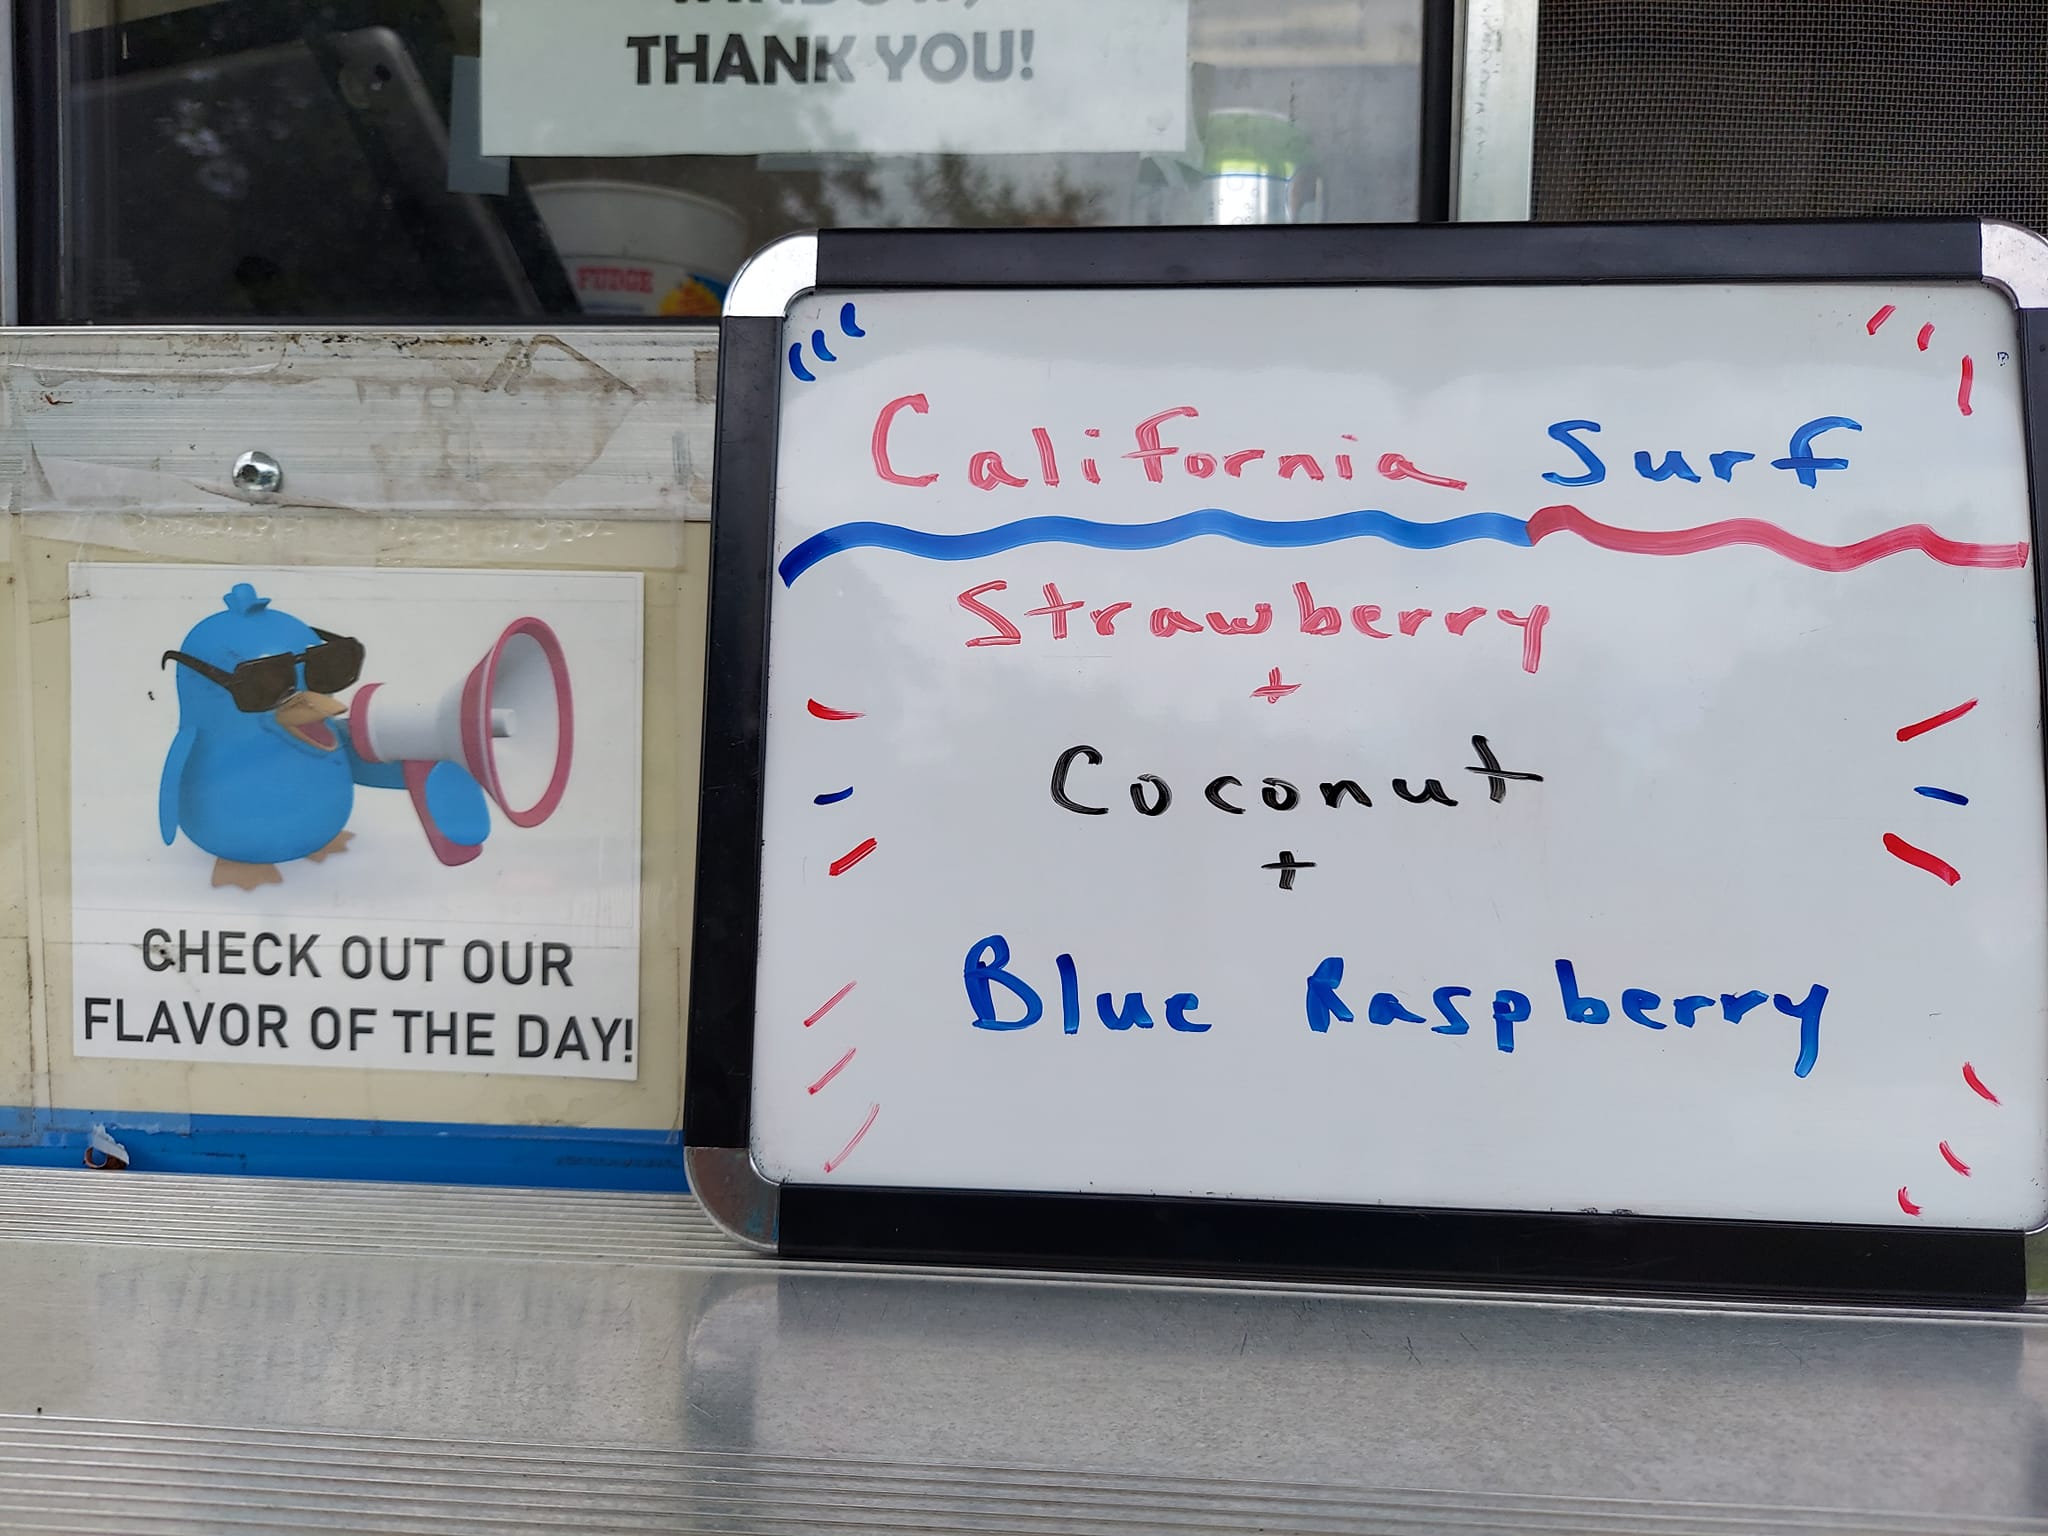 THANK YOU!
FUDGE
California Surf
Strawberry
+
Coconut
+
Blue Raspberry
CHECK OUT OUR
FLAVOR OF THE DAY!